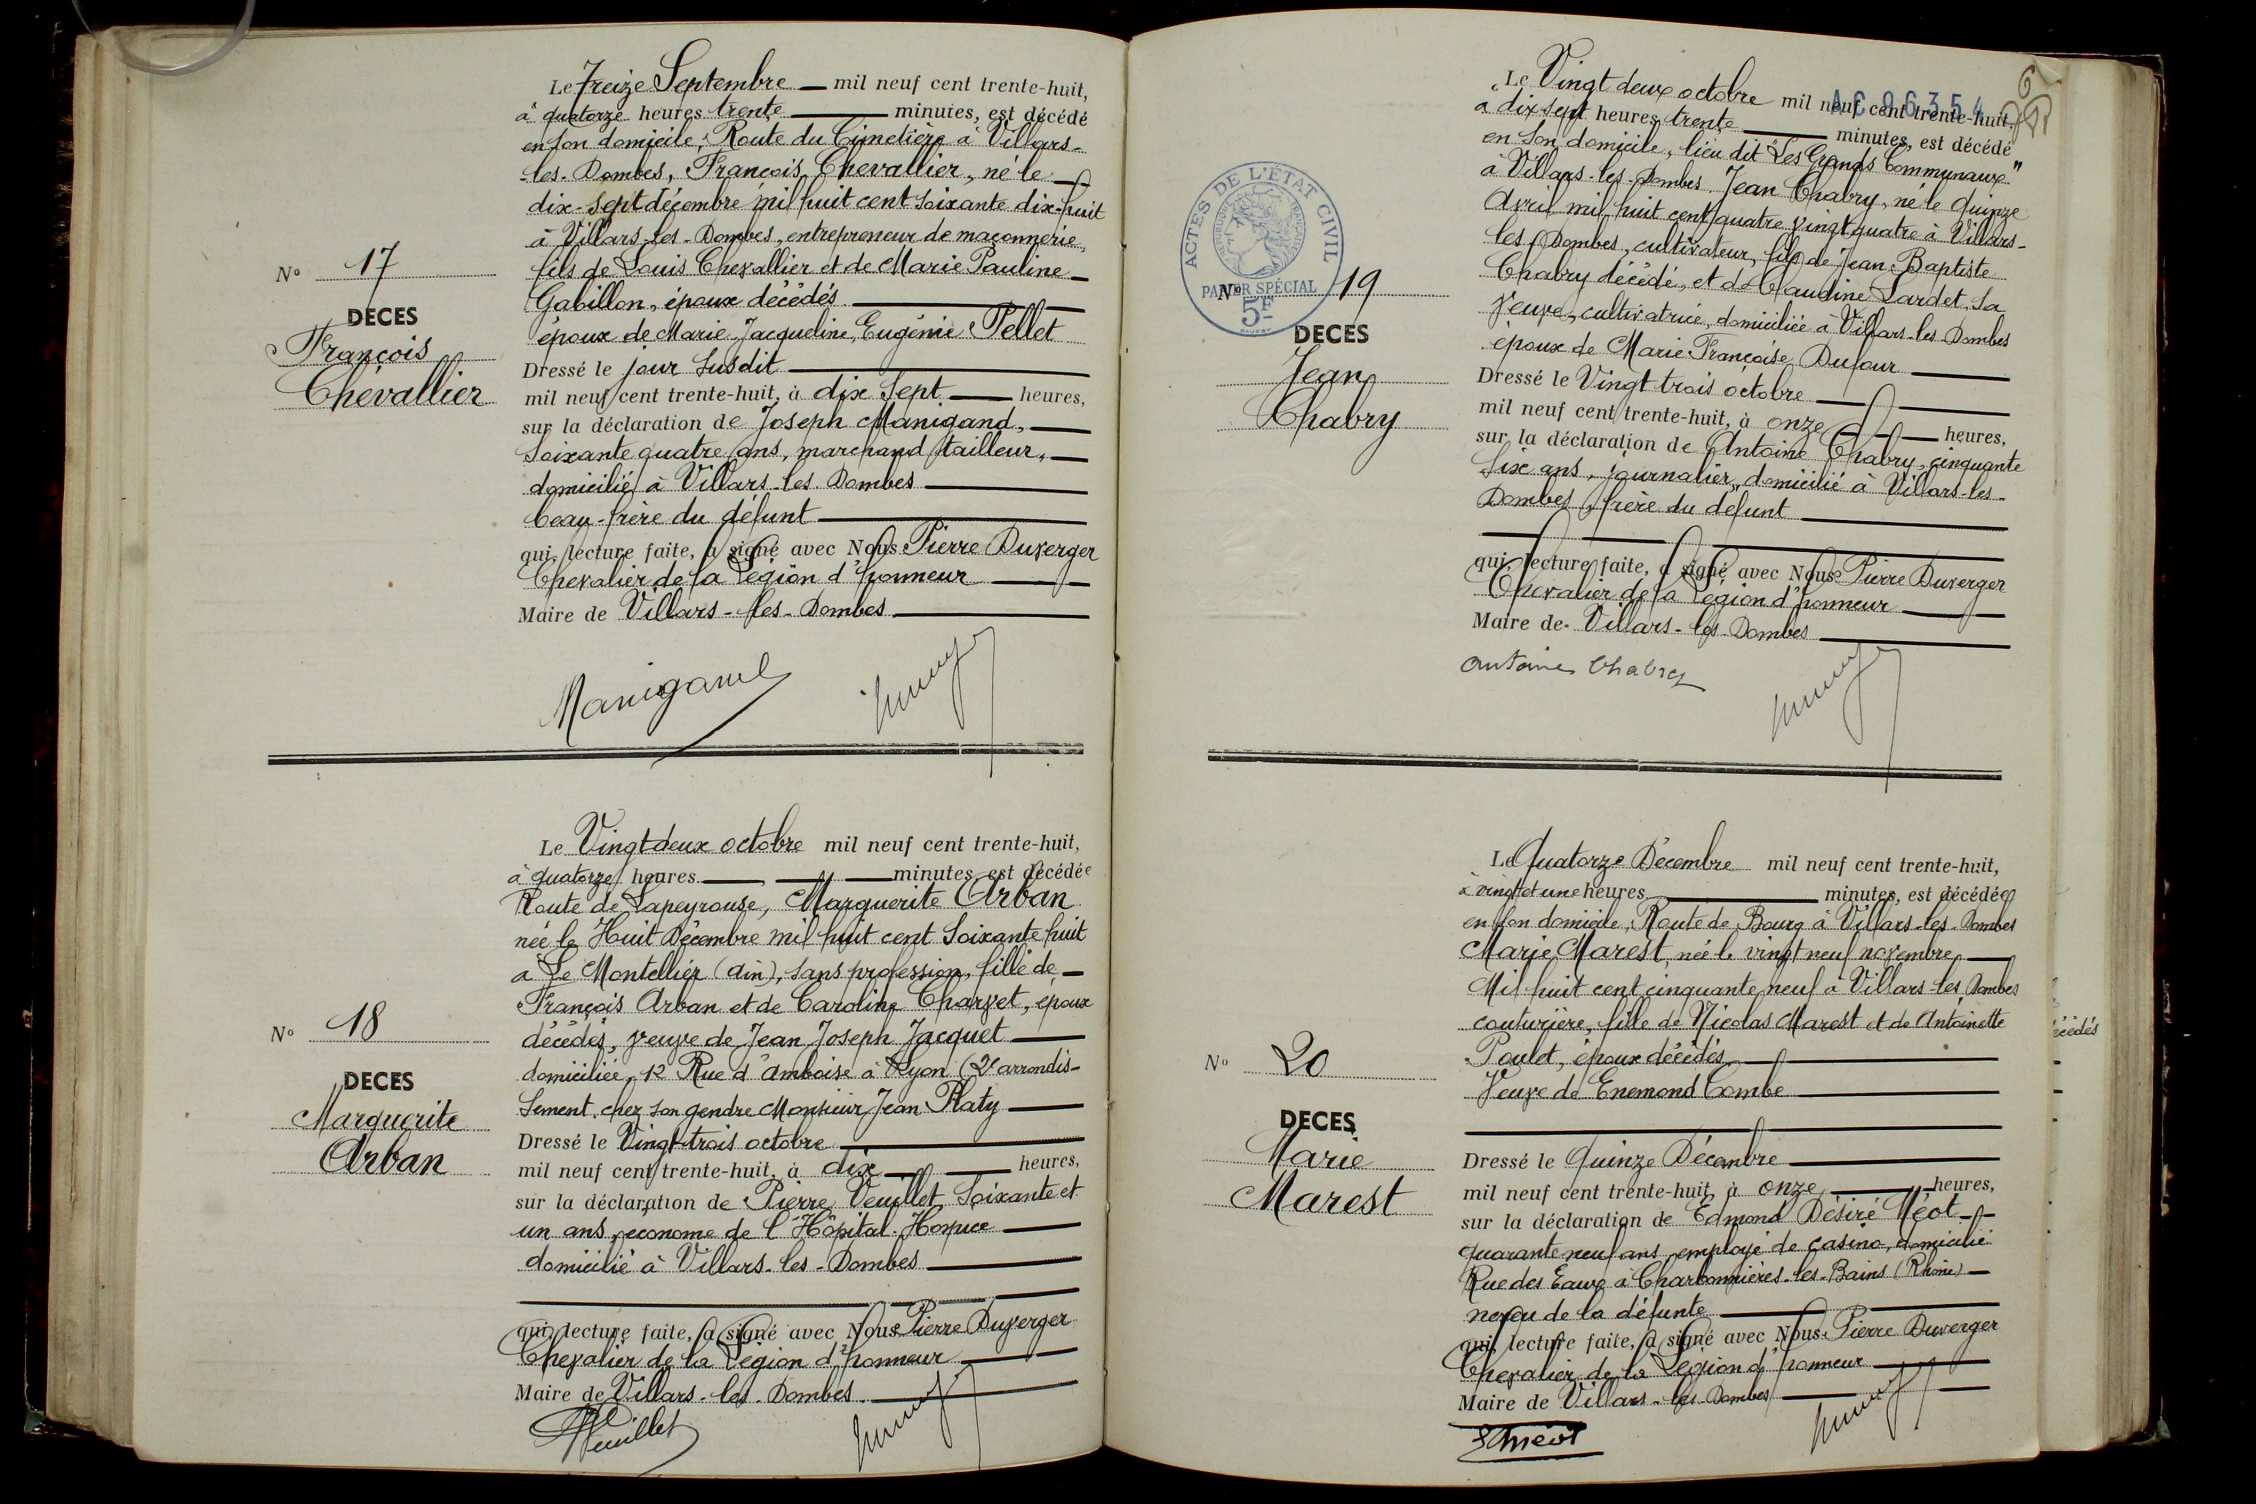 N° 17
DECES
François
Chevallier
Le Treize Septembre mil neuf cent trente-huit,
à quatorze heures trente minutes, est décédé
en son domicile, Route du Cimetière à Villars-
les-Dombes, François Chevallier, né le
dix-sept décembre mil huit cent soixante dix-huit
à Villars-les-Dombes, entrepreneur de maçonnerie,
fils de Louis Chevallier et de Marie Pauline
Gabillon, époux décédés
époux de Marie Jacqueline, Eugénie Pellet
Dressé le jour susdit
mil neuf cent trente-huit, à dix sept heures,
sur la déclaration de Joseph Manigand,
soixante quatre ans, marchand tailleur,
domicilié à Villars-les-Dombes
beau-frère du défunt
qui, lecture faite, a signé avec Nous Pierre Duverger
Chevalier de la Légion d'honneur
Maire de Villars-les-Dombes
Manigand
N° 18
DECES
Marguerite
Arban
Le Vingt deux octobre mil neuf cent trente-huit,
à quatorze heures minutes, est décédée
Route de Lapeyrouse, Marguerite Arban
née le Huit Décembre mil huit cent soixante huit
à Le Montellier (Ain), sans profession, fille de
François Arban et de Caroline Charvet, époux
décédés, veuve de Jean Joseph Jacquet
domiciliée, 12 Rue d'Amboise à Lyon (2e arrondis-
sement, chez son gendre Monsieur Jean Platy
Dressé le Vingt-trois octobre
mil neuf cent trente-huit, à dix heures,
sur la déclaration de Pierre Veuillet, Soixante et
un ans, économe de l'Hôpital-Hospice
domicilié à Villars-les-Dombes
qui, lecture faite, a signé avec Nous Pierre Duverger
Chevalier de la Légion d'honneur
Maire de Villars-les-Dombes
PVeuillet
ACTES DE L'ÉTAT CIVIL
RÉPUBLIQUE FRANÇAISE
PAPIER SPÉCIAL
5F
AC 06354
N° 19
DECES
Jean
Chabry
Le Vingt deux octobre mil neuf cent trente-huit,
à dix sept heures trente minutes, est décédé
en son domicile, lieu dit "Les Grands Communaux"
à Villars-les-Dombes Jean Chabry, né le quinze
Avril mil huit cent quatre vingt quatre à Villars-
les Dombes, cultivateur, fils de Jean-Baptiste
Chabry décédé, et de Claudine Lardet sa
veuve, cultivatrice, domiciliée à Villars-les-Dombes
époux de Marie Françoise Dufour
Dressé le Vingt trois octobre
mil neuf cent trente-huit, à onze heures,
sur la déclaration de Antoine Chabry, cinquante
six ans, journalier, domicilié à Villars-les-
Dombes, frère du défunt
qui, lecture faite, a signé avec Nous Pierre Duverger
Chevalier de la Légion d'honneur
Maire de Villars-les-Dombes
Antoine Chabry
N° 20
DECES
Marie
Marest
Le Quatorze Décembre mil neuf cent trente-huit,
à vingt et une heures minutes, est décédée
en son domicile, Route de Bourg à Villars-les-Dombes
Marie Marest, née le vingt neuf novembre
Mil huit cent cinquante neuf à Villars-les-Dombes
couturière, fille de Nicolas Marest et de Antoinette
Poulet, époux décédés
Veuve de Enemond Combe
Dressé le Quinze Décembre
mil neuf cent trente-huit, à onze heures,
sur la déclaration de Edmond Désiré Méot
quarante neuf ans, employé de casino, domicilié
Rue des Eaux à Charbonnières-les-Bains (Rhône)
neveu de la défunte
qui, lecture faite, a signé avec Nous Pierre Duverger
Chevalier de la Légion d'honneur
Maire de Villars-les-Dombes
EMéot